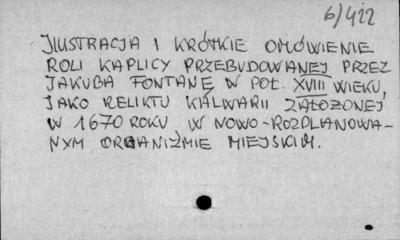 6/422
JLUSTRACJA I KRÓTKIE OMÓWIENIE
ROLI KAPLICY PRZEBUDOWANEJ PRZEZ
JAKUBA FONTANĘ W POŁ. XVIII WIEKU,
JAKO RELIKTU KALWARII ZAŁOŻONEJ
W 1670 ROKU W NOWO-ROZPLANOWA-
NYM ORGANIŹMIE MIEJSKIM.